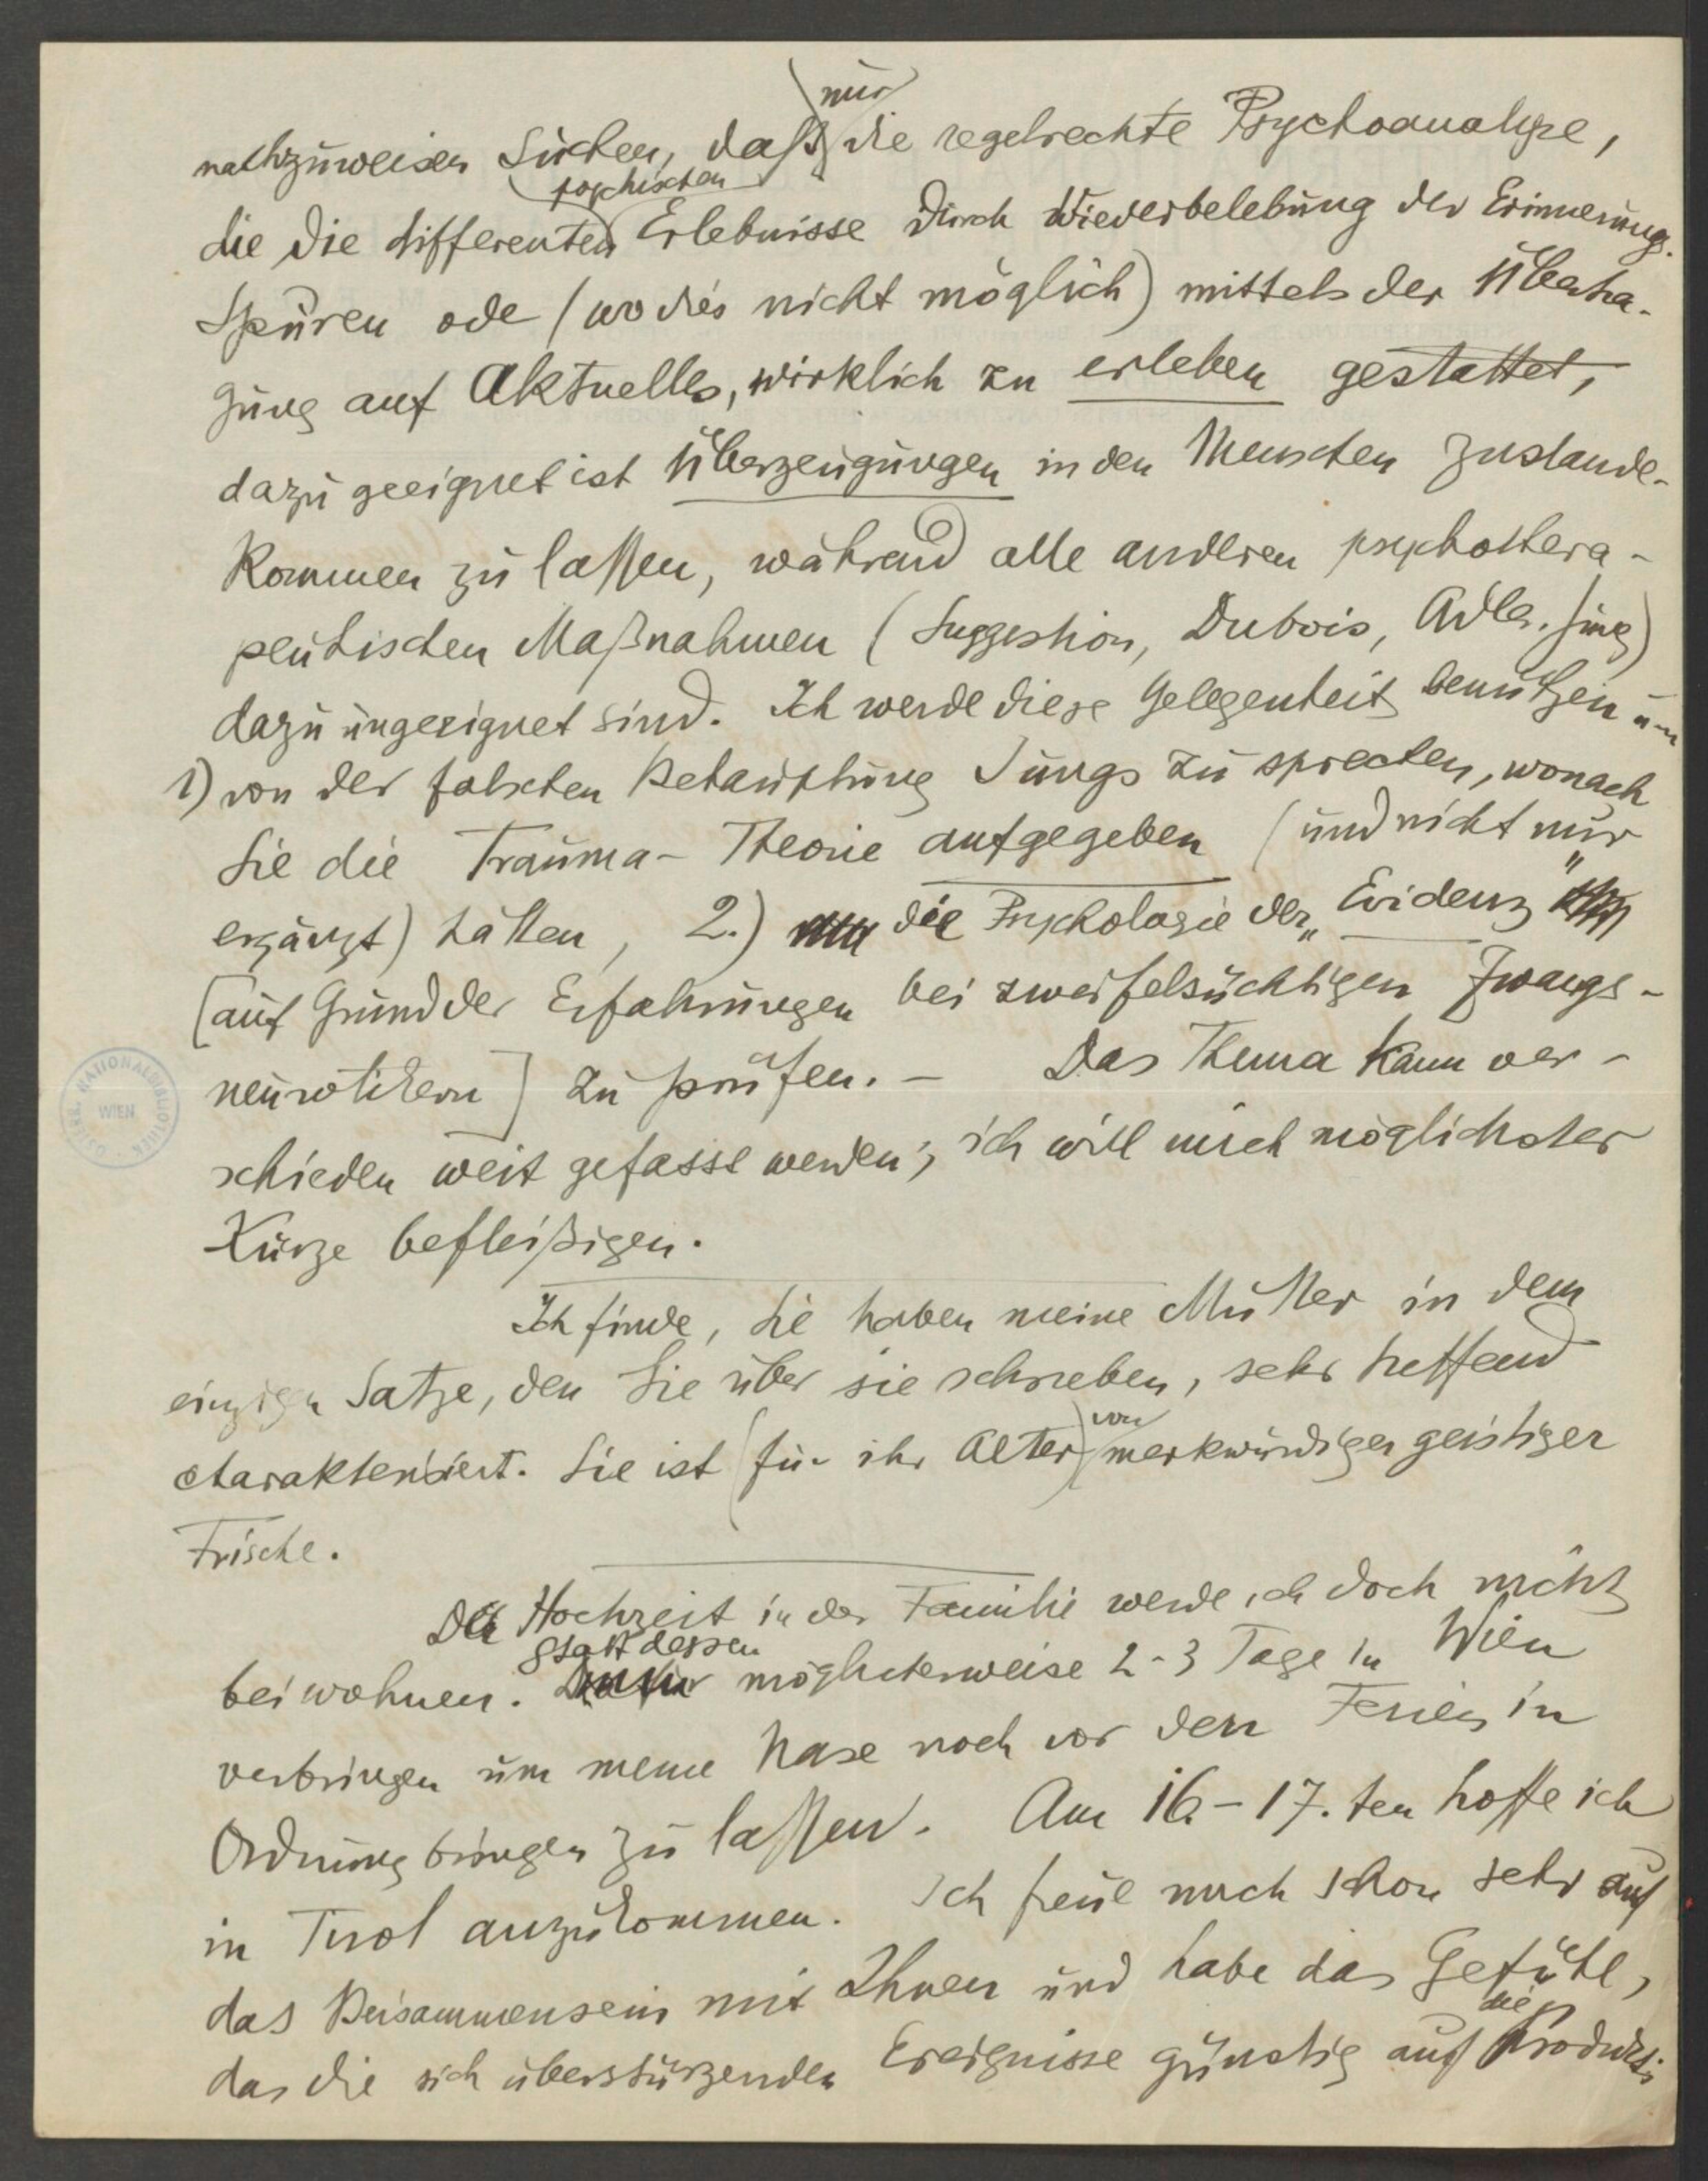 nachzuweisen suchen, daß nur die regelrechte Psychoanalyse,
die die differenten psychischen Erlebnisse durch Wiederbelebung der Erinnerungs-
Spuren ode (wo dies nicht möglich) mittels der Übertra-
gung auf Aktuelles, wirklich zu erleben gestattet,
dazu geeignet ist Überzeugungen in den Menschen zustande-
kommen zu lassen, während alle anderen psychothera-
peutischen Maßnahmen (Suggestion, Dubois, Adler, Jung)
dazu ungeeignet sind. Ich werde diese Gelegenheit benützen um
1) von der falschen Behauptung Jungs zu sprechen, wonach
Sie die Trauma-Theorie aufgegeben (und nicht nur
ergänzt) hätten, 2.) die Psychologie der „Evidenz"
[auf Grund der Erfahrungen bei zweifelsüchtigen Zwangs-
neurotikern] zu prüfen. – Das Thema kann ver-
schieden weit gefasst werden; ich will mich möglichster
Kürze befleißigen.
Ich finde, Sie haben meine Mutter in dem
einzigen Satze, den Sie über sie schrieben, sehr treffend
charakterisiert. Sie ist (für ihr Alter) von merkwürdiger geistiger
Frische.
Der Hochzeit in der Familie werde ich doch nicht
beiwohnen. statt dessen möglicherweise 2-3 Tage in Wien
verbringen um meine Nase noch vor den Ferien in
Ordnung bringen zu lassen. Am 16.-17.ten hoffe ich
in Tirol anzukommen. Ich freue mich schon sehr auf
das Beisammensein mit Ihnen und habe das Gefühl,
das die sich überstürzenden Ereignisse günstig auf die Produkti
ÖSTERR. NATIONALBIBLIOTHEK WIEN